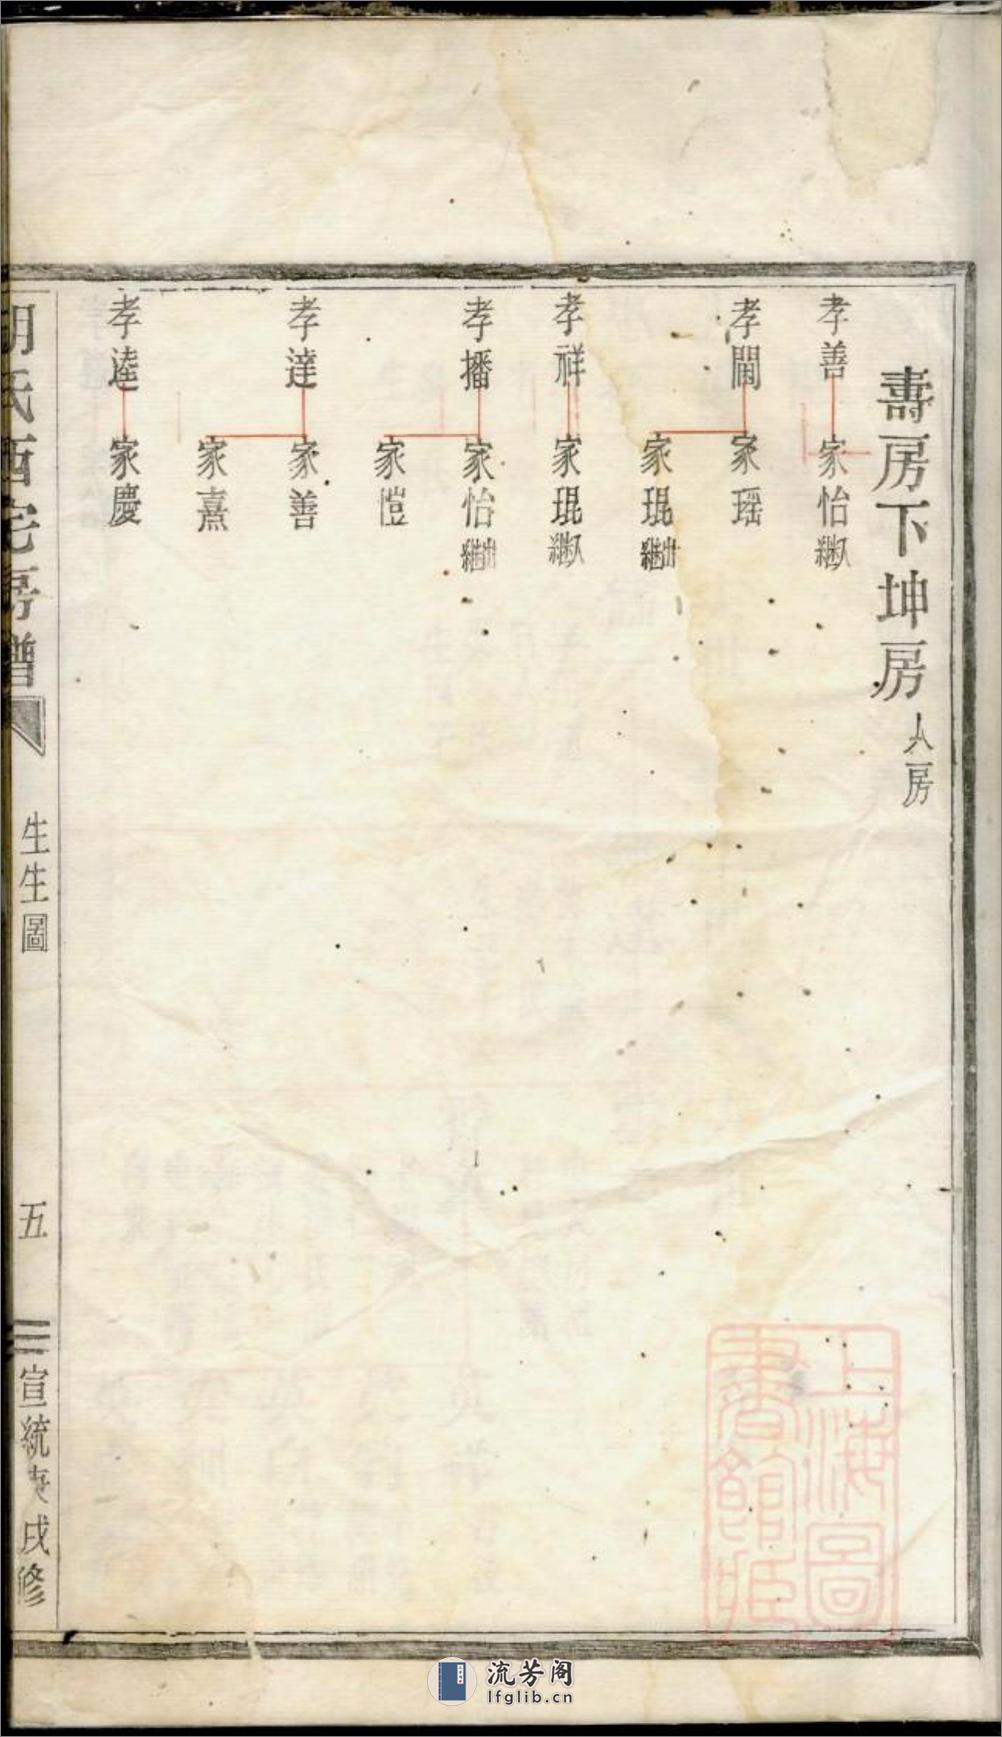 壽房下坤房 人房
孝善
家怡入繼
孝闓
家瑶
家琨出繼
孝祥
家琨入繼
孝播
家怡出繼
家愷
孝達
家善
家熹
孝逵
家慶
胡氏西宅房譜
生生圖
五
宣統庚戌修
上海圖書館藏
流芳阁
lfglib.cn